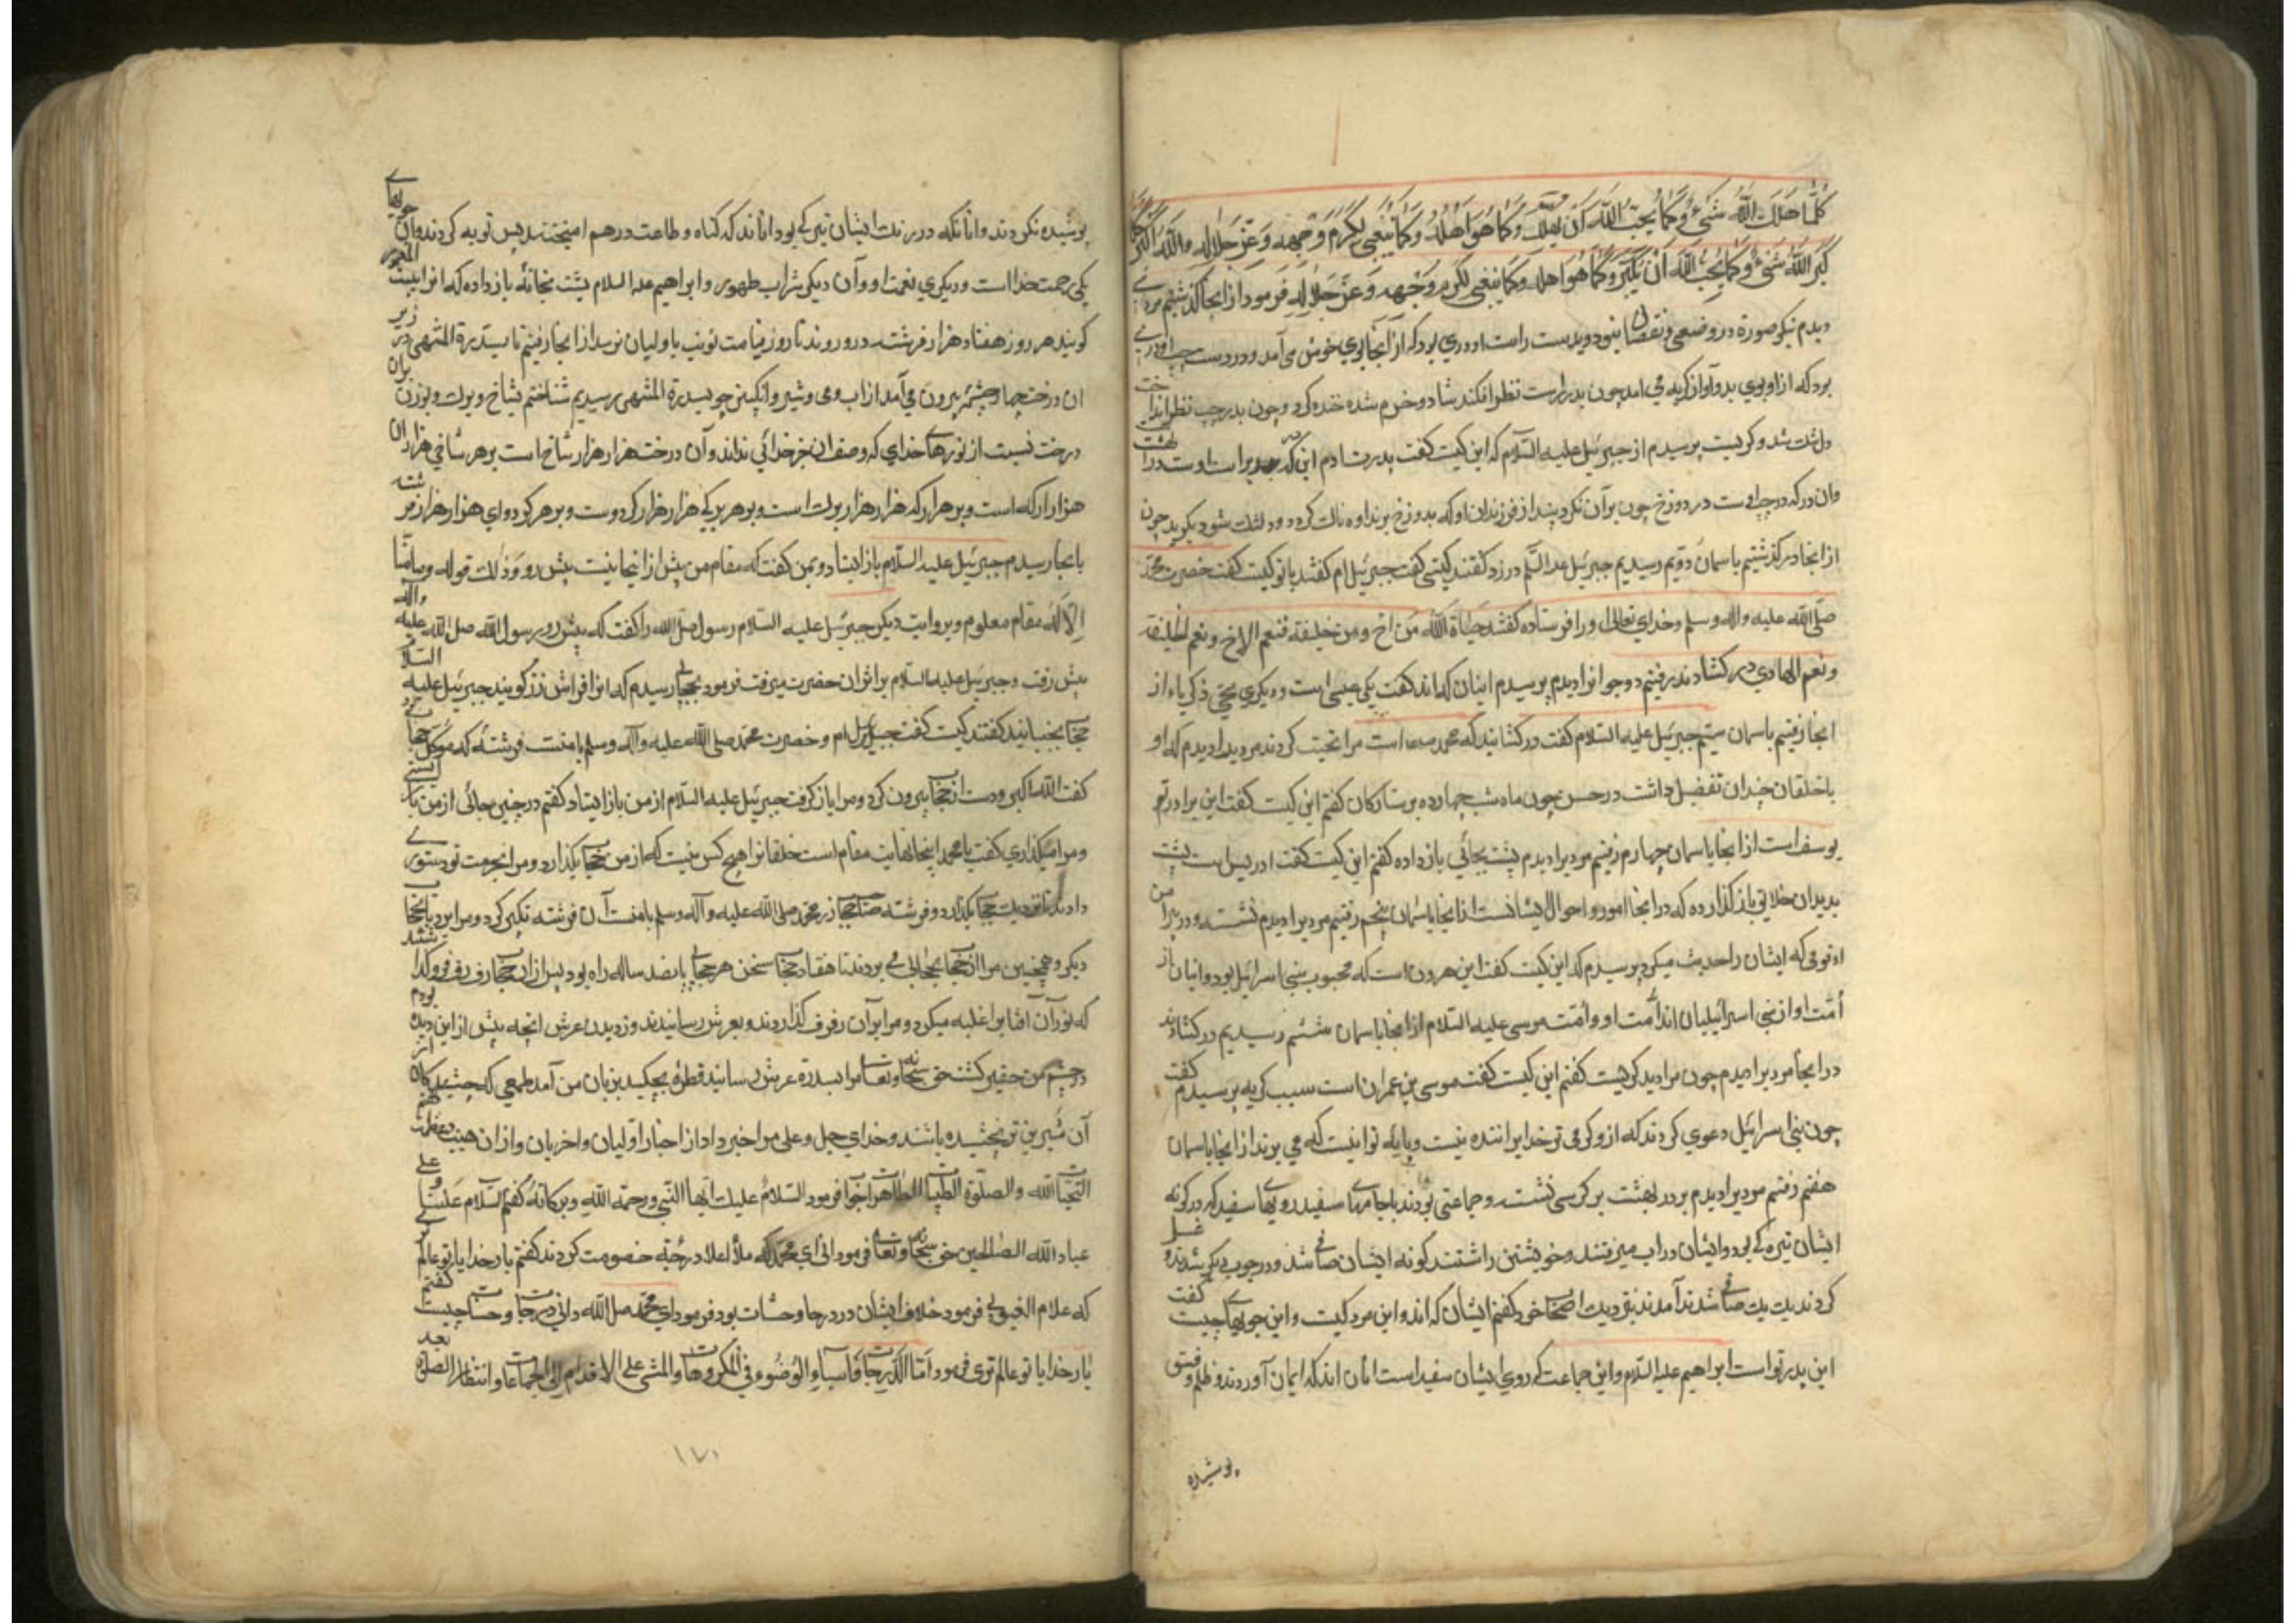 كلما هلل الله شيء وكما يحب الله ان يهلل وكما هو اهله وكما ينبغي لكرم وجهه وعز جلاله والله اكبر كلما
كبر الله شيء وكما يحب الله ان يكبر وكما هو اهله وكما ينبغي لكرم وجهه وعز جلاله فرمود از انجا گذشتیم مردی
دیدم نیکو صورة در وضعی و نقصان نبود و بدست راست او دری بود که از آنجا بوی خوش می آمد و در دست چپ او دری
بود که از او بوی بد و آواز گریه می امد چون بدر راست نظر افکند شاد و خرم شده خنده کرد و چون بدر چپ نظر انداخت
دلتنگ شد و گریست پرسیدم از جبرئیل علیه السلام که این کیست گفت پدرت آدم این که در راست اوست در بهشت
وان در که در چپ اوست در دوزخ چون بر آن نگرد بیند از فرزندان او که بدوزخ برند اوه ناک گردد و دلتنگ شود بگرید چون
از انجا در گذشتیم باسمان دویم رسیدیم جبرئیل علیه السلم در زد گفتند کیستی گفت جبرئیل ام گفتند با تو کیست گفت حضرت محمد
صلی الله علیه واله وسلم و خدای تعالی او را فرستاده گفتند حیاة الله من اخ ومن خلیفة فنعم الاخ ونعم الخلیفة
ونعم الهادی در گشادند رفتیم دو جوانرا دیدم پرسیدم اینان که اند گفت یکی عیسی است و دیگری یحیی ذکریا و از
انجا رفتیم باسمان سیم جبرئیل علیه السلام گفت در گشانید که محمد است مرا تحیت کردند مردیرا دیدم که او
با خلقان چندان تفضیل داشت در حسن چون ماه شب چهارده بر ستارگان گفتم این کیست گفت این برادر تو
یوسف است از انجا باسمان چهارم رفتیم مردیرا دیدم پشت بجائی باز داده گفتم این کیست گفت ادریس است پشت
بدیدان خلایق باز گذارده که در انجا امور و احوال ایشانست از انجا باسمان پنجم رفتیم مردیرا دیدم نشسته و در پیرامن
او قومی که ایشان را حدیث میکرد پرسیدم که این کیست گفت این هرون است که محبوب بنی اسرائیل بود و اینان از
امت او از بنی اسرائیلیان اند امت او و امت موسی علیه السلام از انجا باسمان ششم رسیدیم در گشادند
در انجا مردیرا دیدم چون مرا دید گریست گفتم این کیست گفت موسی بن عمران است سبب گریه پرسیدم گفت
چون بنی اسرائیل دعوی کردند که از و گرمی تر خدایرا بنده نیست و پایه تو اینست که می برند از انجا باسمان
هفتم رفتیم مردیرا دیدم بر در بهشت بر کرسی نشسته و جماعتی بودند با جامهای سفید رویهای سفید که در گونه
ایشان تیره کی بود و ایشان در اب میرفتند و خویشتن را شتند گونه ایشان صافی شد و در جوی دیگر شدند و غسل
کردند یک یک صافی شدند آمدند نزدیک اصحاب خود گفتم ایشان که اند و این مرد کیست و این جویها چیست گفت
این پدر تو است ابراهیم علیه السلام و این جماعت که روی ایشان سفید است انان اند که ایمان آوردند و ظلم و فسق
پوشیده
پوشیده نکردند و انانکه در رنک ایشان تیره کی بود انانند که گناه و طاعت درهم امیختند پس توبه کردند و آن جویهای
یکی رحمت خدا است و دیگری نعمت او و آن دیگر شراب طهور و ابراهیم علیه السلام پشت بخانه باز داده که انرا بیت المعمور
گویند هر روز هفتاد هزار فرشته در و روند تا روز قیامت نوبت باولیان نرسد از انجا رفتیم تا بسدرة المنتهی در زیر
ان درخت چهار چشمه بیرون می آمد از اب و می و شیر و انگبین چون بسدرة المنتهی رسیدیم شناختم شاخ و برک و نور ان
درخت نیست از نورهای خدای که وصف ان جز خدائی نداند و آن درخت هزار هزار شاخ است بر هر شاخی هزاران
هزار ارکه است و بر هر ارکه هزار هزار برک است و بر هر برکی هزار هزار کردوست و بر هر کردوای هزار هزار فرشته
بانجا رسیدم جبرئیل علیه السلام باز ایستاد و بمن گفت که مقام من پیش از اینجا نیست پیش رو وذلك قوله وما منا
الا له مقام معلوم و بروایت دیگر جبرئیل علیه السلام رسول صلی الله را گفت که پیش رو رسول الله صلی الله علیه واله
پیش رفت و جبرئیل علیه السلام بر اثر ان حضرت میرفت فرمود بحجابی رسیدم که انرا فراش زر گویند جبرئیل علیه السلام
حجاب بجنبانید گفتند کیست گفت جبرئیل ام و حضرت محمد صلی الله علیه وآله وسلم با منست فرشته که موکل حجاب بود
گفت الله اکبر و دست از حجاب بیرون کرد و مرا باز گرفت جبرئیل علیه السلام از من باز ایستاد گفتم در چنین جائی از من باز ایستی
و مرا میگذاری گفت یا محمد اینجا نهایت مقام است خلقانرا هیچ کس نیست که از من حجاب بگذارد و مرا بحرمت تو دستوری
دادند تا نزدیک حجاب بگذرد و فرشته صاحب حجاب زر محمد صلی الله علیه وآله وسلم با منست آن فرشته تکبیر کرد و مرا برد تا بحجاب
دیگر و همچنین مرا از حجاب بحجابی می بردند تا هفتاد حجاب سخن هر حجابی پانصد ساله راه بود پس از ان حجاب رفرف فرو گذاشتند
که نور آن آفتابرا غلبه میکرد و مرا بر آن رفرف گذاردند و بعرش رسانیدند و ز دیدن عرش انچه پیش از این دیده بودم
در چشم من حقیر گشت حق سبحانه وتعالی مرا بسدرة عرش رسانید قطرۀ بچکید بزبان من آمد طعمی که چشندگان از
آن شیرین تر نچشیده باشند و خدای جل وعلی مرا خبر داد از اخبار اولیان و اخریان و از ان هیبت و عظمت هم
التحیات لله والصلوة الطیبات الطاهرات جواب فرمود السلام علیك ایها النبی ورحمة الله وبرکاته گفتم السلام علینا وعلی
عباد الله الصالحین حق سبحانه وتعالی فرمود انی ای محمد که ملأ اعلا در چه خصومت کردند گفتم بار خدایا تو عالم تری
که علام الغیوبی فرمود خلاف ایشان در درجات و حسنات بود فرمود ای محمد صل الله دانی درجات و حسنات چیست گفتم
بار خدایا تو عالم تری فرمود اما الدرجات فاسباغ الوضوء فی المکروهات والمشی علی الاقدام الی الجماعات وانتظار الصلوة بعد
۱۷۰